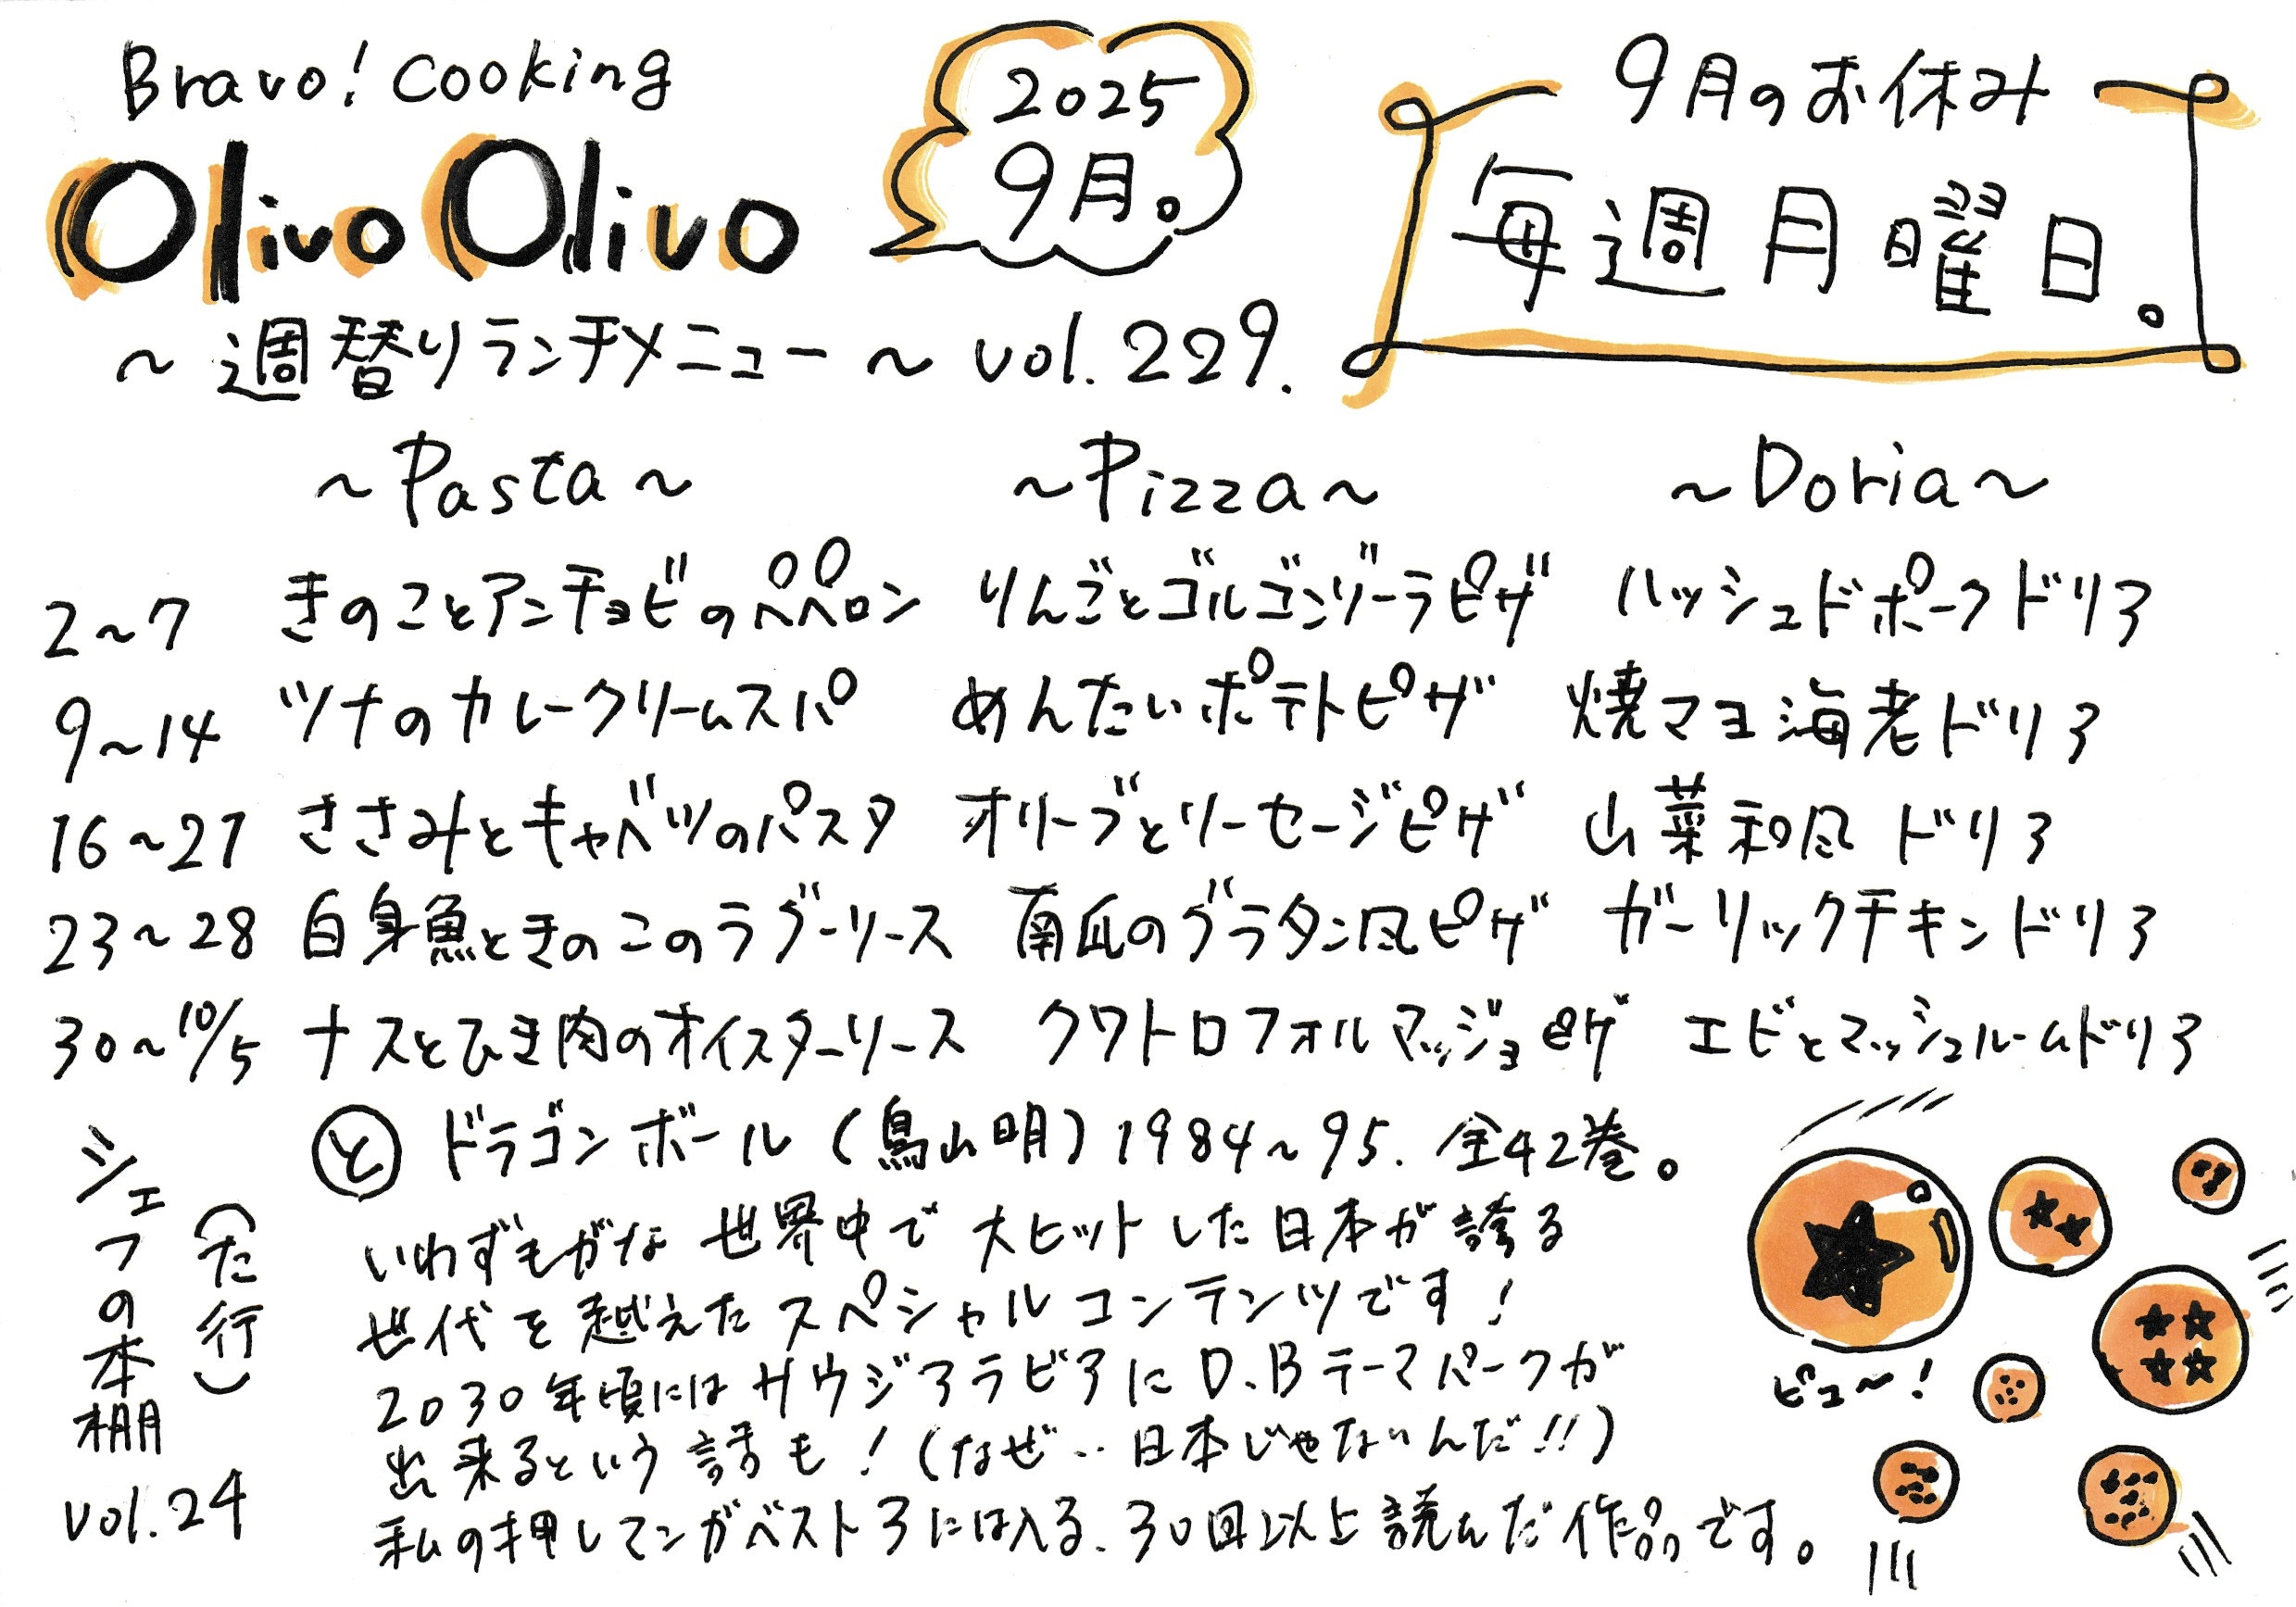 Bravo! Cooking
Olivo Olivo
2025
9月。
9月のお休み
毎週月曜日。
～週替りランチメニュー～ vol.229.
～Pasta～ ～Pizza～ ～Doria～
2～7 きのことアンチョビのペペロン りんごとゴルゴンゾーラピザ ハッシュドポークドリア
9～14 ツナのカレークリームスパ めんたいポテトピザ 焼マヨ海老ドリア
16～21 ささみとキャベツのパスタ オリーブとソーセージピザ 山菜和風ドリア
23～28 白身魚ときのこのラグーソース 南瓜のグラタン風ピザ ガーリックチキンドリア
30～10/5 ナスとひき肉のオイスターソース クワトロフォルマッジョピザ エビとマッシュルームドリア
シェフの本棚
(た行)
vol.24
と ドラゴンボール(鳥山明)1984～95. 全42巻。
いわずもがな 世界中で大ヒットした日本が誇る
世代を越えたスペシャルコンテンツです!
2030年頃にはサウジアラビアにD.Bテーマパークが
出来るという話も!(なぜ‥日本じゃないんだ!!)
私の押しマンガベスト3には入る、30回以上読んだ作品です。
ピュ～!